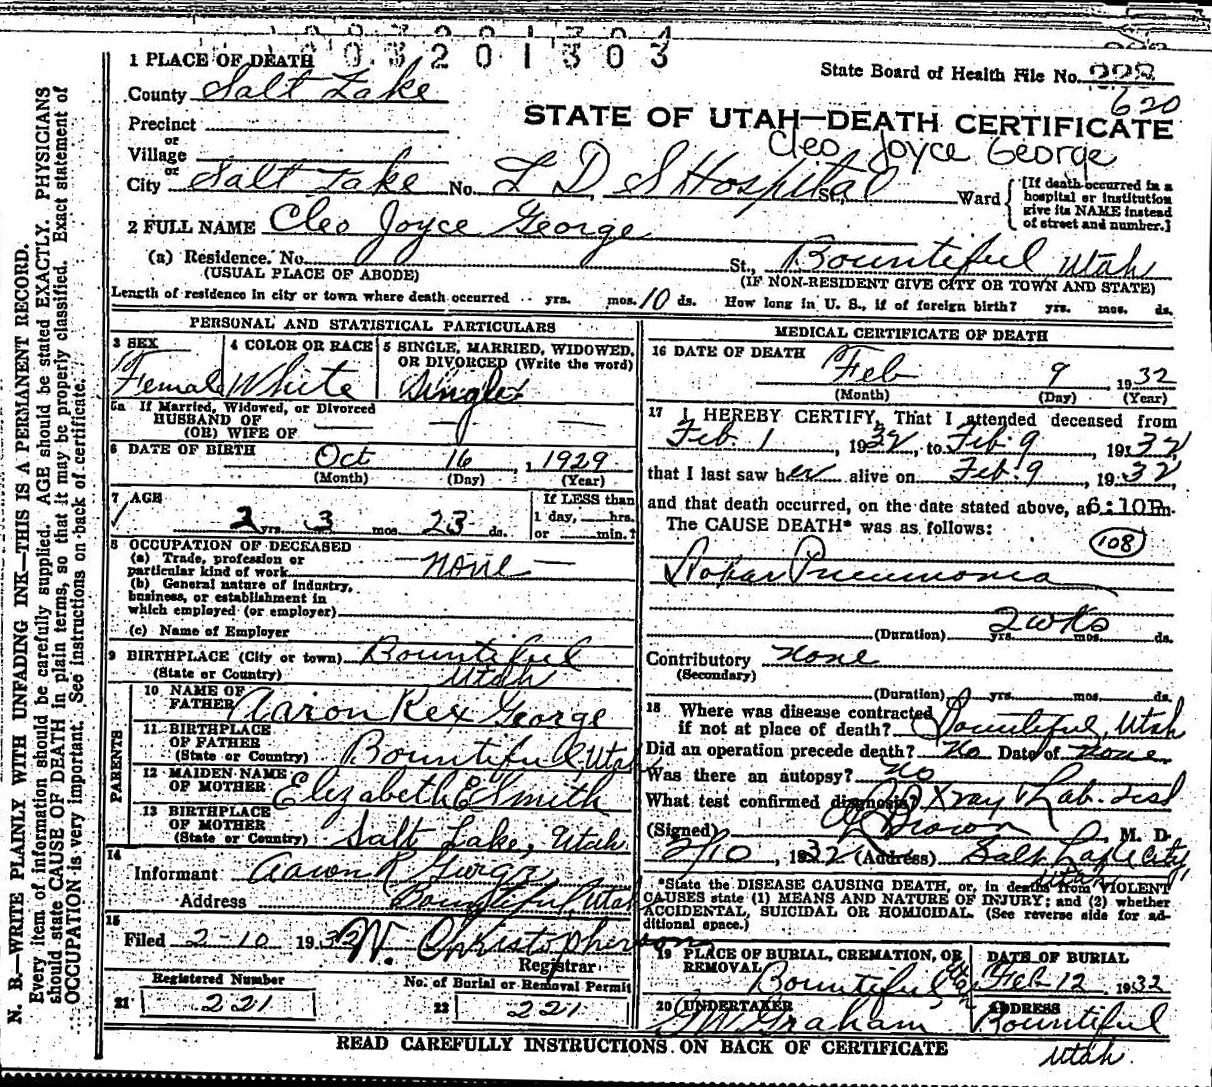 0 3 2 0 1 3 0 3
1 PLACE OF DEATH
State Board of Health File No. 228
620
County Salt Lake
STATE OF UTAH—DEATH CERTIFICATE
Precinct
or
Cleo Joyce George
Village
or
City Salt Lake No. L D S Hospital St., Ward
[If death occurred in a hospital or institution give its NAME instead of street and number.]
2 FULL NAME Cleo Joyce George
(a) Residence. No. St., Bountiful, Utah
(USUAL PLACE OF ABODE) (IF NON-RESIDENT GIVE CITY OR TOWN AND STATE)
Length of residence in city or town where death occurred yrs. mos. 10 ds. How long in U. S., if of foreign birth? yrs. mos. ds.
PERSONAL AND STATISTICAL PARTICULARS
3 SEX
Female
4 COLOR OR RACE
White
5 SINGLE, MARRIED, WIDOWED,
OR DIVORCED (Write the word)
Single
5a If Married, Widowed, or Divorced
HUSBAND OF
(OR) WIFE OF
6 DATE OF BIRTH Oct 16, 1929
(Month) (Day) (Year)
7 AGE
2 yrs. 3 mos. 23 ds.
If LESS than
1 day, hrs.
or min.?
8 OCCUPATION OF DECEASED
(a) Trade, profession or
particular kind of work none
(b) General nature of industry,
business, or establishment in
which employed (or employer)
(c) Name of Employer
9 BIRTHPLACE (City or town) Bountiful
(State or Country) Utah
PARENTS
10 NAME OF
FATHER Aaron Rex George
11 BIRTHPLACE
OF FATHER
(State or Country) Bountiful, Utah
12 MAIDEN NAME
OF MOTHER Elizabeth E Smith
13 BIRTHPLACE
OF MOTHER
(State or Country) Salt Lake, Utah
14
Informant Aaron R. George
Address Bountiful, Utah
15
Filed 2-10 1932 W. Christopherson
Registrar
Registered Number
21 221
No. of Burial or Removal Permit
22 221
MEDICAL CERTIFICATE OF DEATH
16 DATE OF DEATH
Feb 9, 1932
(Month) (Day) (Year)
17 I HEREBY CERTIFY, That I attended deceased from
Feb. 1, 1932, to Feb. 9, 1932
that I last saw her alive on Feb. 9, 1932
and that death occurred, on the date stated above, at 6:10 P.m.
The CAUSE DEATH* was as follows:
108
Lobar Pneumonia
2 wks
(Duration) yrs. mos. ds.
Contributory none
(Secondary)
(Duration) yrs. mos. ds.
18 Where was disease contracted
if not at place of death? Bountiful, Utah
Did an operation precede death? No Date of none
Was there an autopsy? no
What test confirmed diagnosis? Xray & Lab. test
(Signed) Brown, M. D.
2/10, 1932 (Address) Salt Lake City,
Utah
*State the DISEASE CAUSING DEATH, or, in deaths from VIOLENT
CAUSES state (1) MEANS AND NATURE OF INJURY; and (2) whether
ACCIDENTAL, SUICIDAL OR HOMICIDAL. (See reverse side for ad-
ditional space.)
19 PLACE OF BURIAL, CREMATION, OR
REMOVAL
Bountiful, Utah
DATE OF BURIAL
Feb 12 1932
20 UNDERTAKER
G W Graham
ADDRESS
Bountiful
Utah.
READ CAREFULLY INSTRUCTIONS ON BACK OF CERTIFICATE
N. B.—WRITE PLAINLY WITH UNFADING INK—THIS IS A PERMANENT RECORD.
Every item of information should be carefully supplied. AGE should be stated EXACTLY. PHYSICIANS
should state CAUSE OF DEATH in plain terms, so that it may be properly classified. Exact statement of
OCCUPATION is very important. See instructions on back of certificate.